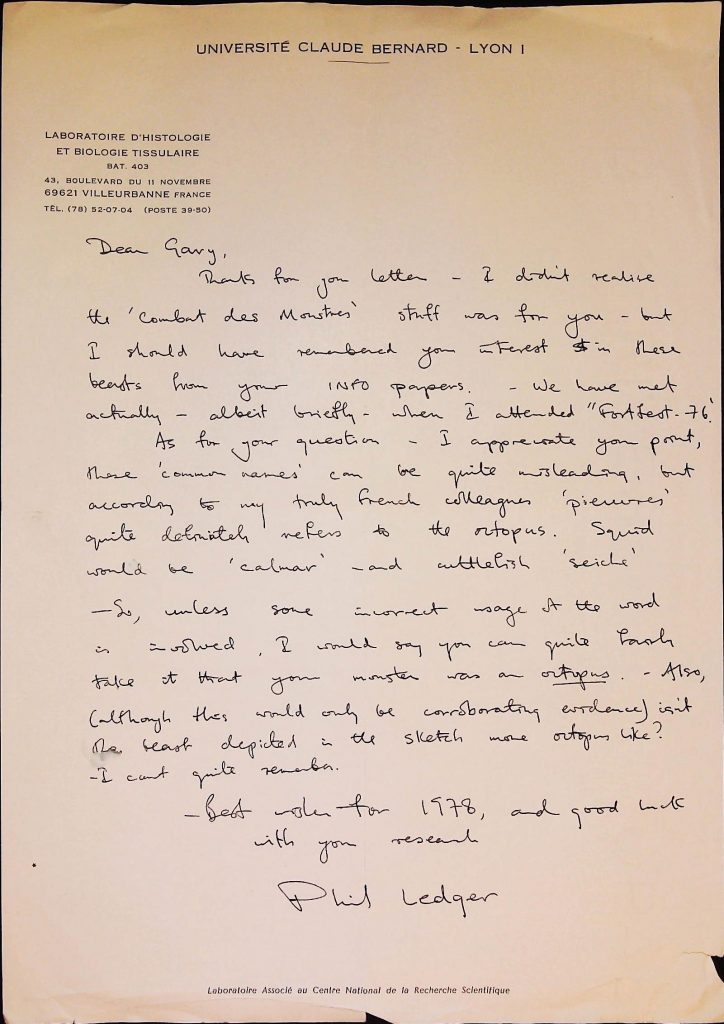 UNIVERSITÉ CLAUDE BERNARD - LYON I
LABORATOIRE D'HISTOLOGIE
ET BIOLOGIE TISSULAIRE
BAT. 403
43, BOULEVARD DU 11 NOVEMBRE
69621 VILLEURBANNE FRANCE
TÉL. (78) 52-07-04 (POSTE 39-50)
Dear Gary,
Thanks for your letter - I didn't realise
the 'Combat des Monstres' stuff was for you - but
I should have remembered your interest in these
beasts from your INFO papers. - We have met
actually - albeit briefly - when I attended "FortFest-76".
As for your question - I appreciate your point,
these 'common names' can be quite misleading, but
according to my truly French colleagues 'pieuvres'
quite definitely refers to the octopus. Squid
would be 'calmar' - and cuttlefish 'seiche'
- So, unless some incorrect usage of the word
is involved, I would say you can quite
take it that your monster was an octopus. - Also,
(although this would only be corroborating evidence) isn't
the beast depicted in the sketch more octopus like?
- I can't quite remember.
- Best wishes for 1978, and good luck
with your research
Phil Ledger
Laboratoire Associé au Centre National de la Recherche Scientifique